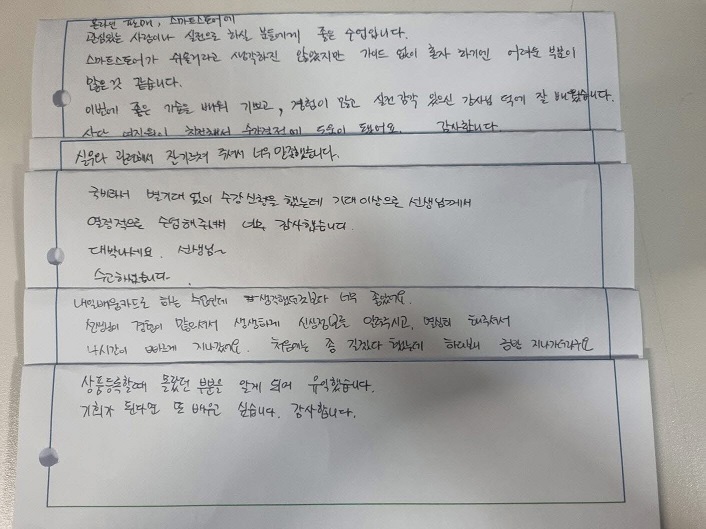 온라인 판매, 스마트스토어에
관심있는 사람이나 실전으로 하실 분들에게 좋은 수업입니다.
스마트스토어가 쉬울거라고 생각하진 않았지만 가이드 없이 혼자 하기엔 어려운 부분이
많은것 같습니다.
이번에 좋은 기술을 배워 기쁘고, 경험이 많고 실전감각 있으신 강사님 덕에 잘 배웠습니다.
상담 여직원이 친절해서 수강결정에 도움이 됐어요. 감사합니다.
실무와 관련해서 잘 가르쳐 주셔서 너무 만족했습니다.
국비라서 별기대 없이 수강신청을 했는데 기대이상으로 선생님께서
열정적으로 수업해주셔서 너무 감사합니다.
대박나세요. 선생님~
수고하셨습니다~
내일배움카드로 하는 수업인데 생각했던것보다 너무 좋았어요.
선생님이 경험이 많으셔서 생생하게 신상정보를 알려주시고, 열심히 해주셔서
4시간이 빠르게 지나갔어요. 처음에는 좀 길겠다 했는데 하다보니 금방 지나가더라구요
상품등록할때 몰랐던 부분을 알게 되어 유익했습니다.
기회가 된다면 또 배우고 싶습니다. 감사합니다.